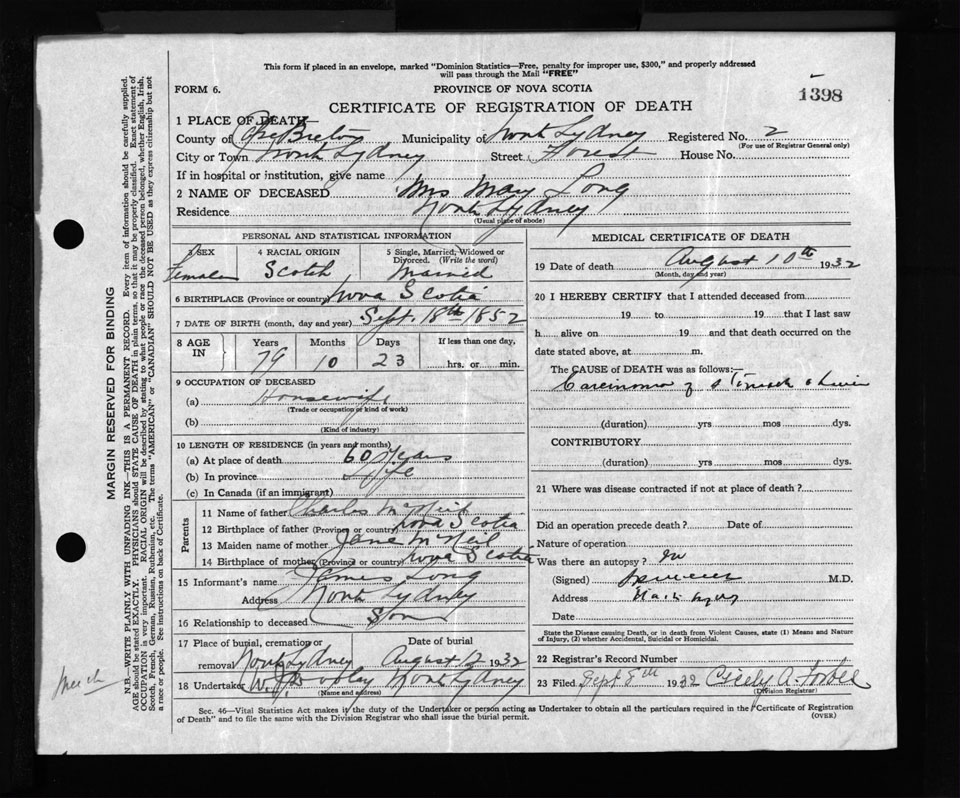 This form if placed in an envelope, marked "Dominion Statistics—Free, penalty for improper use, $300," and properly addressed
will pass through the Mail "FREE"
FORM 6.
PROVINCE OF NOVA SCOTIA
1398
CERTIFICATE OF REGISTRATION OF DEATH
1 PLACE OF DEATH
County of Cape Breton Municipality of North Sydney Registered No. 2
(For use of Registrar General only)
City or Town North Sydney Street Forest House No.
If in hospital or institution, give name
2 NAME OF DECEASED Mrs Mary Long
Residence North Sydney
(Usual place of abode)
PERSONAL AND STATISTICAL INFORMATION
3 SEX
Female
4 RACIAL ORIGIN
Scotch
5 Single, Married, Widowed or Divorced. (Write the word)
Married
6 BIRTHPLACE (Province or country) Nova Scotia
7 DATE OF BIRTH (month, day and year) Sept. 18th 1852
8 AGE IN
Years Months Days If less than one day,
79 10 23 hrs. or min.
9 OCCUPATION OF DECEASED
(a) Housewife
(Trade or occupation or kind of work)
(b)
(Kind of industry)
10 LENGTH OF RESIDENCE (in years and months)
(a) At place of death 60 Years
(b) In province Life
(c) In Canada (if an immigrant)
Parents
11 Name of father Charles McNeil
12 Birthplace of father (Province or country) Nova Scotia
13 Maiden name of mother Jane McNeil
14 Birthplace of mother (Province or country) Nova Scotia
15 Informant's name James Long
Address North Sydney
16 Relationship to deceased Son
17 Place of burial, cremation or removal North Sydney
Date of burial August 12 1932
18 Undertaker North Sydney
(Name and address)
MEDICAL CERTIFICATE OF DEATH
19 Date of death August 10th 1932
(Month, day and year)
20 I HEREBY CERTIFY that I attended deceased from
19 to 19 that I last saw
h alive on 19 and that death occurred on the
date stated above, at m.
The CAUSE of DEATH was as follows:—
Carcinoma of stomach & Liver
(duration) yrs mos dys.
CONTRIBUTORY
(duration) yrs mos dys.
21 Where was disease contracted if not at place of death?
Did an operation precede death? Date of
Nature of operation
Was there an autopsy? no
(Signed) M.D.
Address
Date
State the Disease causing Death, or in death from Violent Causes, state (1) Means and Nature
of Injury, (2) whether Accidental, Suicidal or Homicidal.
22 Registrar's Record Number
23 Filed Sept 5th 1932 A. Forbes
(Division Registrar)
Sec. 46—Vital Statistics Act makes it the duty of the Undertaker or person acting as Undertaker to obtain all the particulars required in the "Certificate of Registration
of Death" and to file the same with the Division Registrar who shall issue the burial permit.
(OVER)
MARGIN RESERVED FOR BINDING
N.B.—WRITE PLAINLY WITH UNFADING INK—THIS IS A PERMANENT RECORD. Every item of information should be carefully supplied.
AGE should be stated EXACTLY. PHYSICIANS should STATE CAUSE OF DEATH in plain terms, so that it may be properly classified. Exact statement of
OCCUPATION is very important. RACIAL ORIGIN will be described by stating to what people or race the deceased person belonged, whether English, Irish,
Scotch, French, German, Russian, Ruthenian, etc. The terms "AMERICAN" or "CANADIAN" SHOULD NOT BE USED as they express citizenship but not
a race or people. See instructions on back of Certificate.